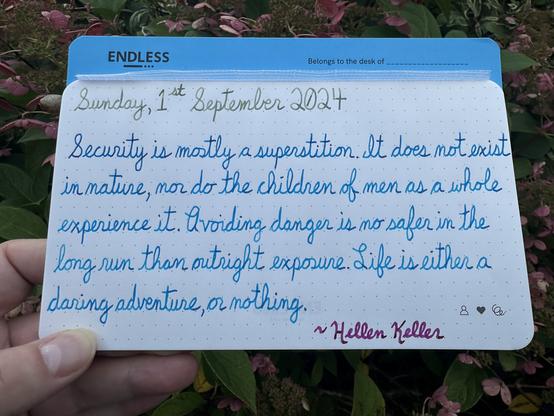 ENDLESS
Belongs to the desk of
Sunday, 1st September 2024
Security is mostly a superstition. It does not exist
in nature, nor do the children of men as a whole
experience it. Avoiding danger is no safer in the
long run than outright exposure. Life is either a
daring adventure, or nothing.
~ Hellen Keller